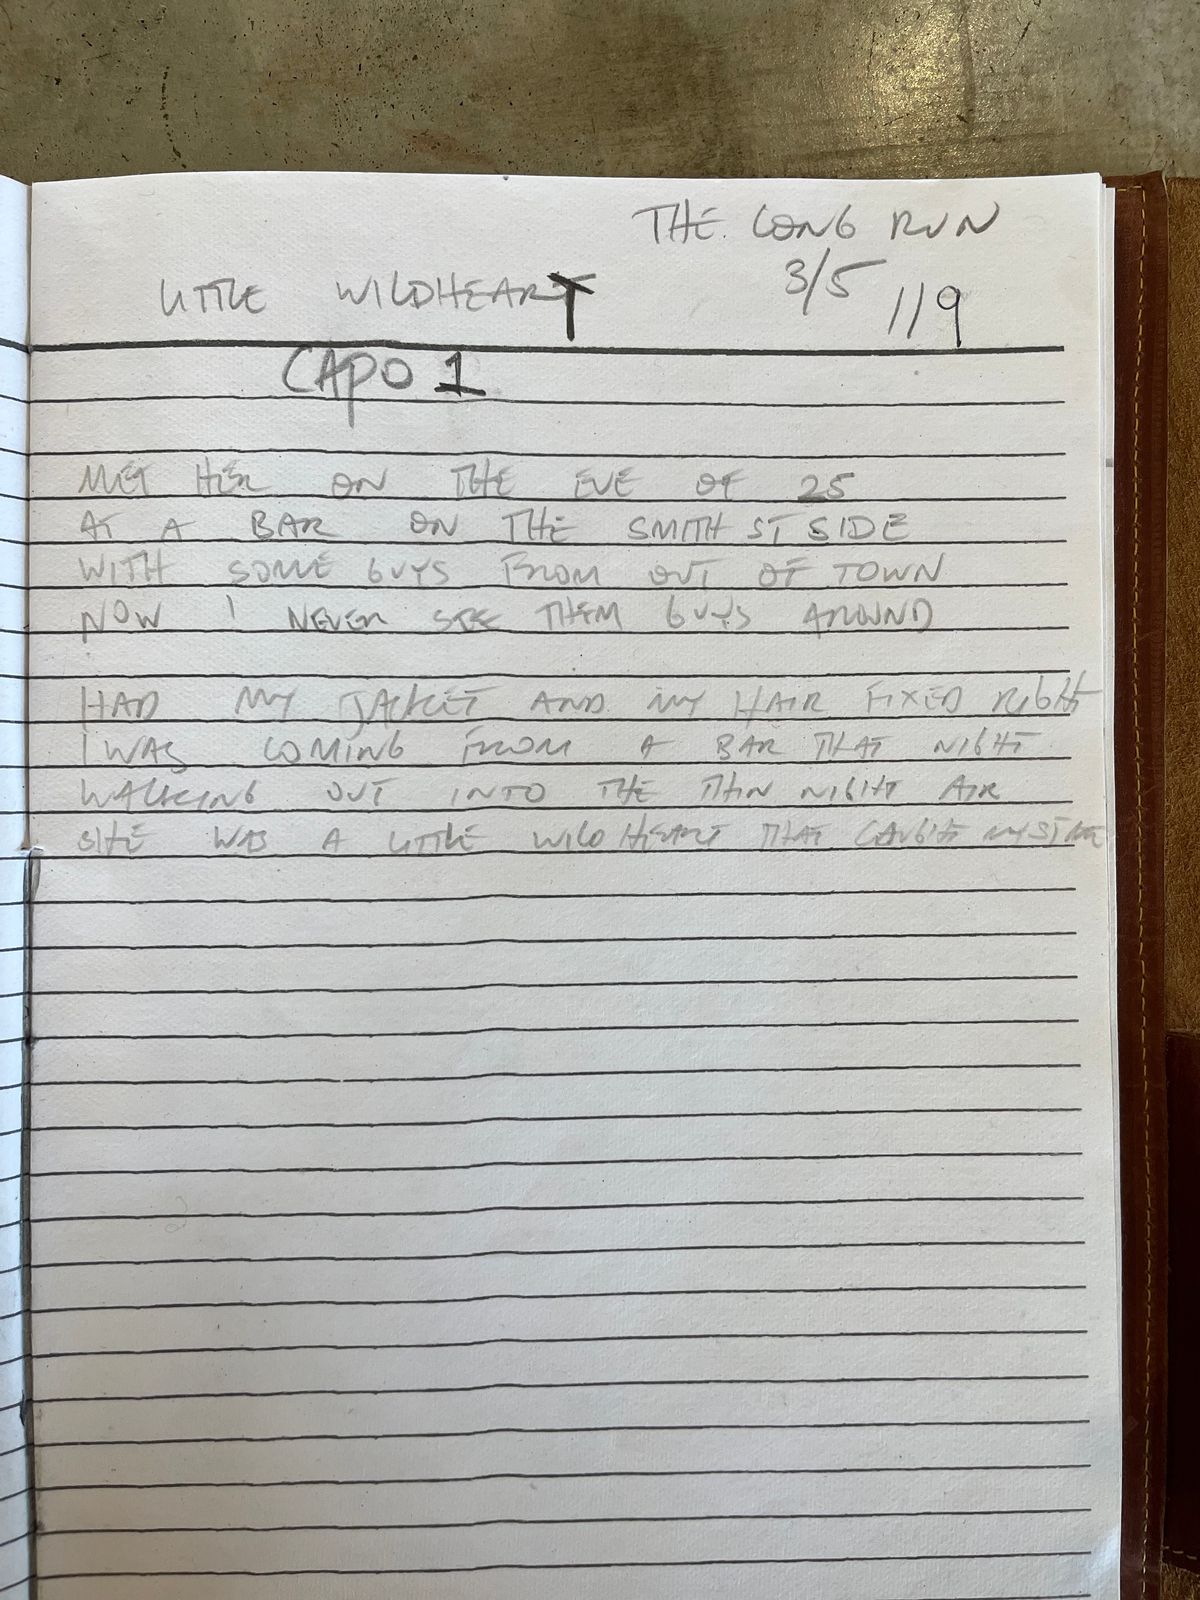 THE LONG RUN
3/5
119
LITTLE WILDHEART
CAPO 1
MET HER ON THE EVE OF 25
AT A BAR ON THE SMITH ST SIDE
WITH SOME GUYS FROM OUT OF TOWN
NOW I NEVER SEE THEM GUYS AROUND
HAD MY JACKET AND MY HAIR FIXED RIGHT
I WAS COMING FROM A BAR THAT NIGHT
WALKING OUT INTO THE THIN NIGHT AIR
SHE WAS A LITTLE WILD HEART THAT CAUGHT MY STARE